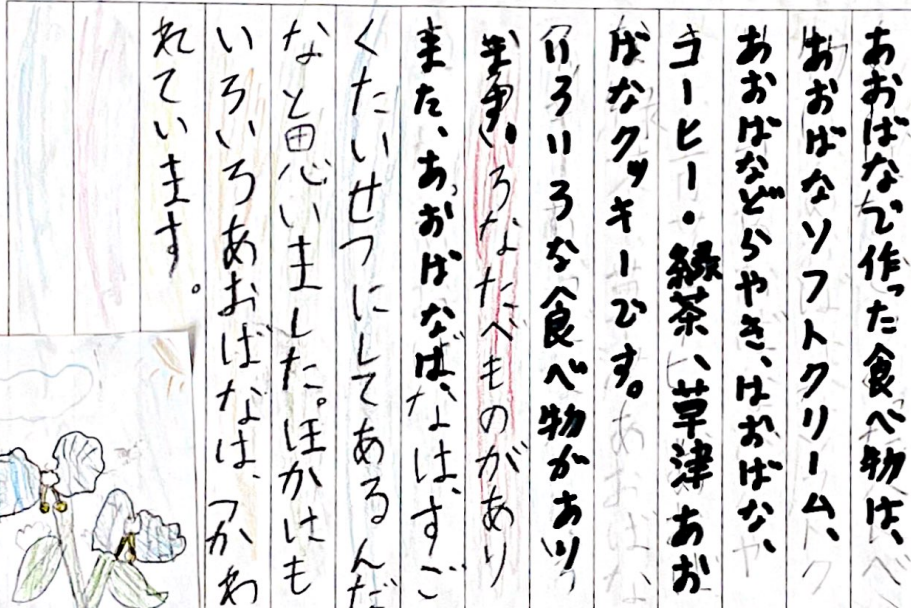 あおばなで作った食べ物は、
あおばなソフトクリーム、
あおばなどらやき、はおばな、
コーヒー・緑茶、草津あお
ばなクッキーです。
いろいろな食べ物があり
ろなたべものがあり
また、あおばなば、なは、すご
くたいせつにしてあるんだ
なと思いました。ほかにも
いろいろあおばなは、つかわ
れています。